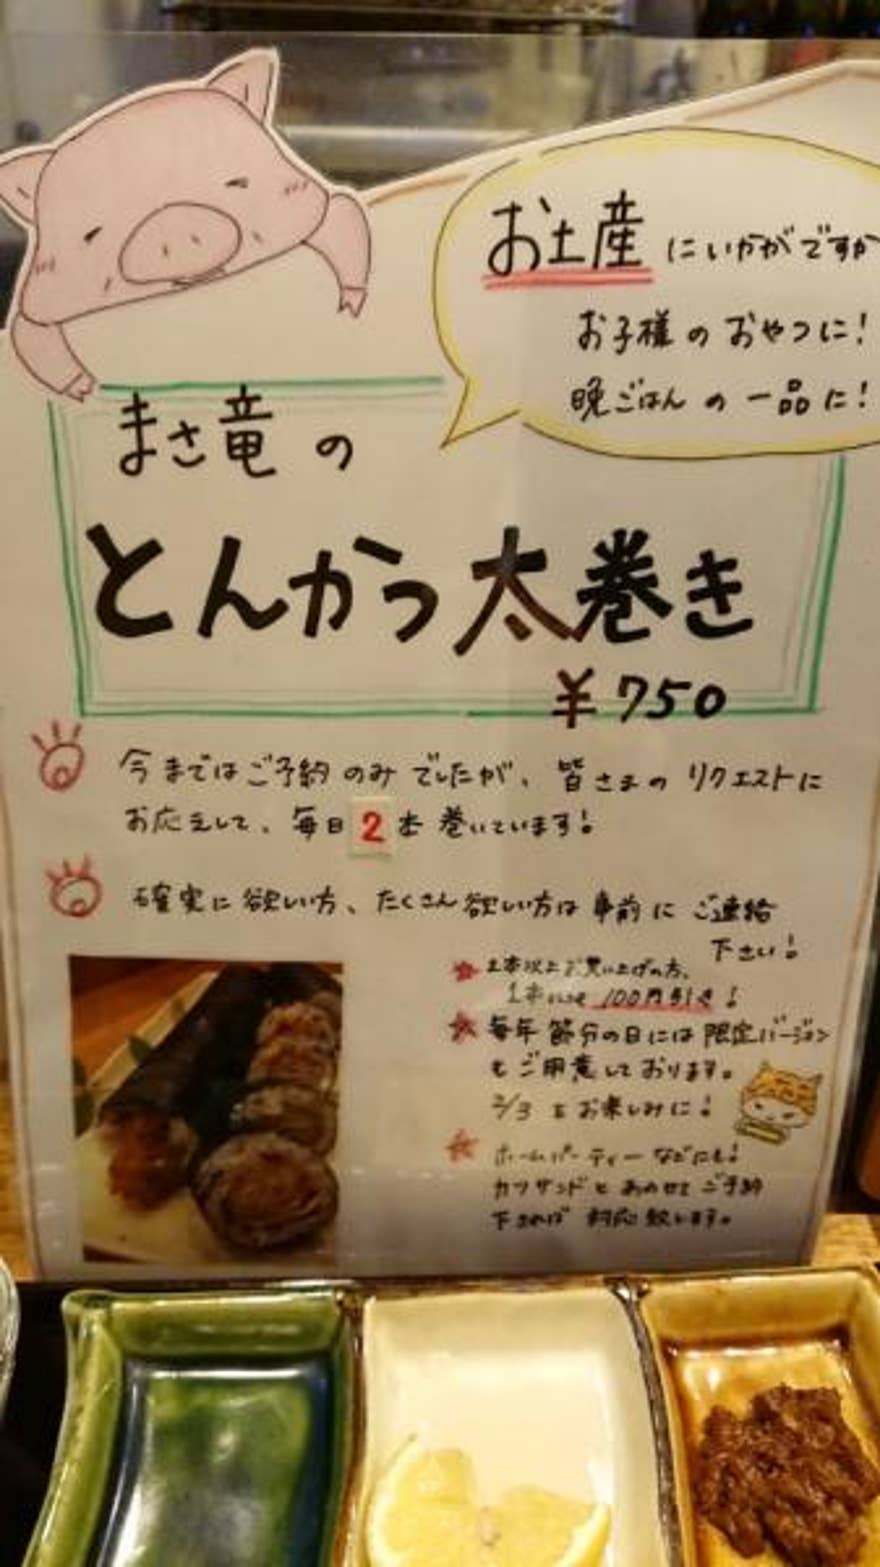 お土産にいかがですか
お子様のおやつに!
晩ごはんの一品に!
まさ竜の
とんかつ太巻き
¥750
今まではご予約のみでしたが、皆さまのリクエストに
お応えして、毎日2本巻いています!
確実に欲しい方、たくさん欲しい方は事前にご連絡
下さい!
2本以上お買い上げの方、
1本につき100円引き!
毎年節分の日には限定バージョン
もご用意しております。
2/3をお楽しみに!
ホームパーティーなどにも!
カツサンドとあわせてご予約
下されば対応致します。